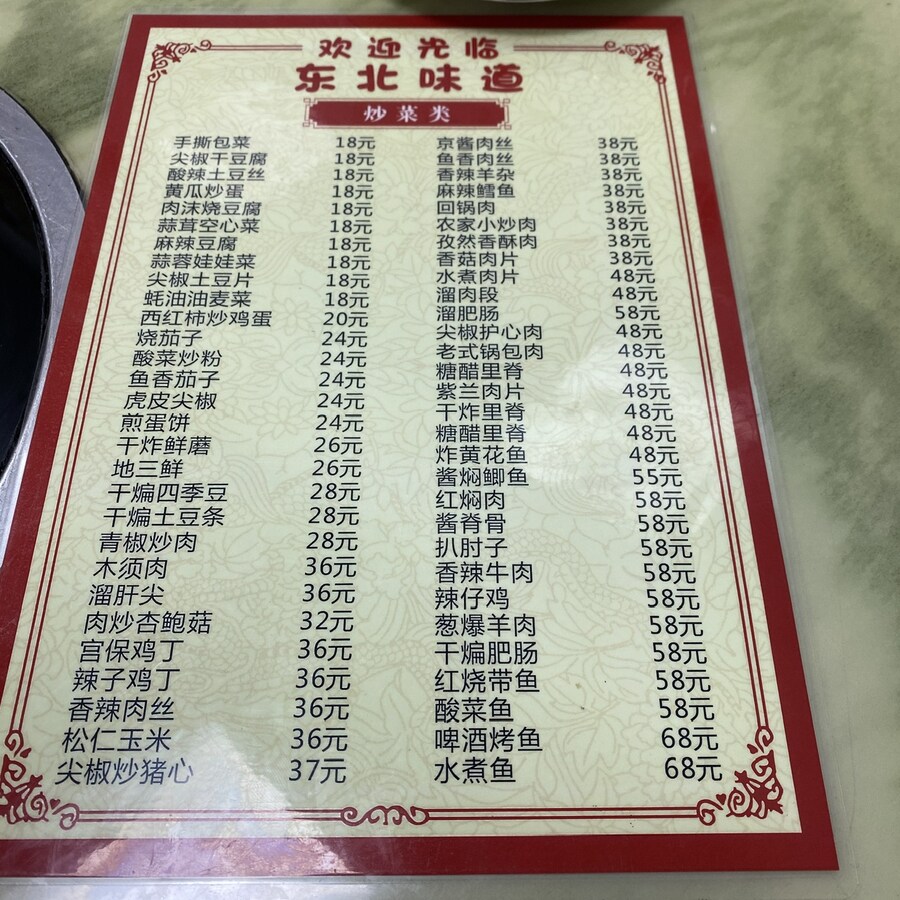 欢迎光临
东北味道
炒菜类
手撕包菜 18元
尖椒干豆腐 18元
酸辣土豆丝 18元
黄瓜炒蛋 18元
肉沫烧豆腐 18元
蒜茸空心菜 18元
麻辣豆腐 18元
蒜蓉娃娃菜 18元
尖椒土豆片 18元
蚝油油麦菜 18元
西红柿炒鸡蛋 20元
烧茄子 24元
酸菜炒粉 24元
鱼香茄子 24元
虎皮尖椒 24元
煎蛋饼 24元
干炸鲜蘑 26元
地三鲜 26元
干煸四季豆 28元
干煸土豆条 28元
青椒炒肉 28元
木须肉 36元
溜肝尖 36元
肉炒杏鲍菇 32元
宫保鸡丁 36元
辣子鸡丁 36元
香辣肉丝 36元
松仁玉米 36元
尖椒炒猪心 37元
京酱肉丝 38元
鱼香肉丝 38元
香辣羊杂 38元
麻辣鳕鱼 38元
回锅肉 38元
农家小炒肉 38元
孜然香酥肉 38元
香菇肉片 38元
水煮肉片 48元
溜肉段 48元
溜肥肠 58元
尖椒护心肉 48元
老式锅包肉 48元
糖醋里脊 48元
紫兰肉片 48元
干炸里脊 48元
糖醋里脊 48元
炸黄花鱼 48元
酱焖鲫鱼 55元
红焖肉 58元
酱脊骨 58元
扒肘子 58元
香辣牛肉 58元
辣仔鸡 58元
葱爆羊肉 58元
干煸肥肠 58元
红烧带鱼 58元
酸菜鱼 58元
啤酒烤鱼 68元
水煮鱼 68元